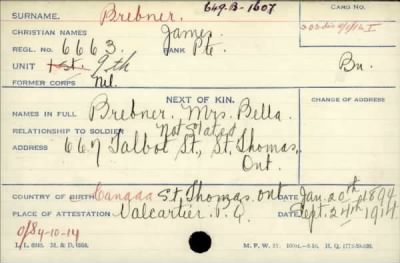 649-B-1607
SURNAME. Brebner. CARD NO.
CHRISTIAN NAMES James.
REGL. NO. 6663. RANK Pte.
UNIT 1st. 9th Bn.
FORMER CORPS Nil.
NEXT OF KIN. CHANGE OF ADDRESS
NAMES IN FULL Brebner, Mrs. Bella.
RELATIONSHIP TO SOLDIER Not Stated
ADDRESS 667 Talbot St., St. Thomas,
Ont.
COUNTRY OF BIRTH Canada St. Thomas. Ont DATE Jan. 20th 1894
PLACE OF ATTESTATION Valcartier. P. Q. DATE Sept. 24th 1914
0/84-10-14
L. L. M. & D.
M. F. W. H. Q.